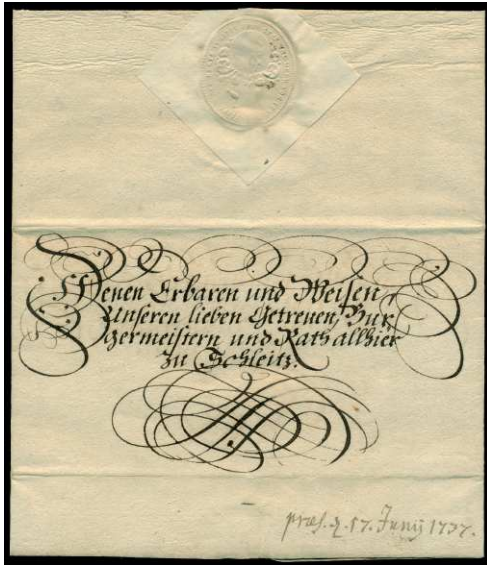 Denen Erbaren und Weisen,
Unseren lieben Getreuen, Bur
germeistern und Rath allhier
zu Schleitz.
præs. d. 17. Junij 1737.